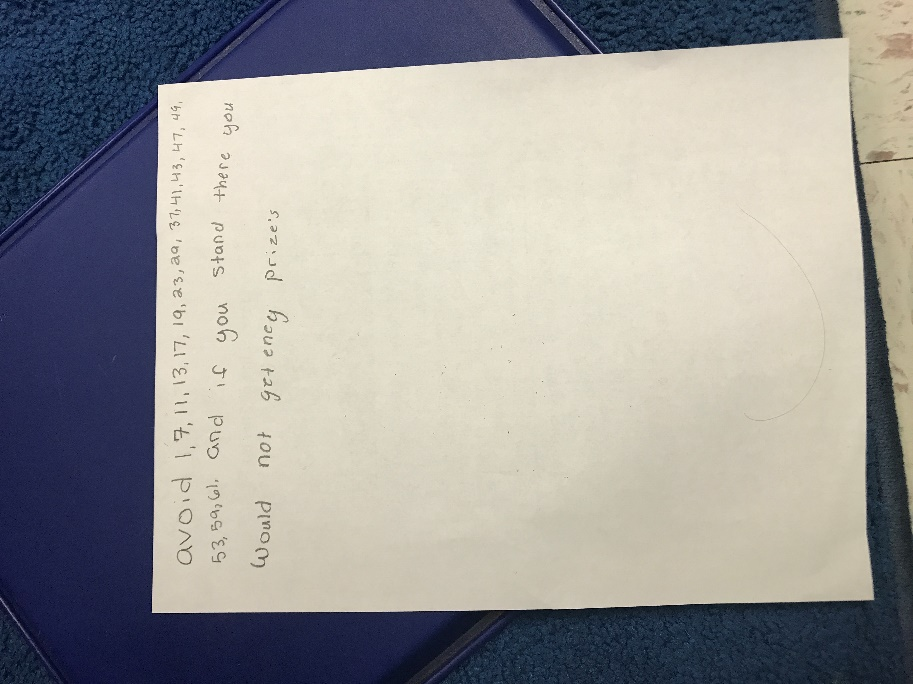 avoid 1,7,11,13,17,19,23,29,37,41,43,47,49,
53,59,61. and if you stand there you
Would not get eney prize's